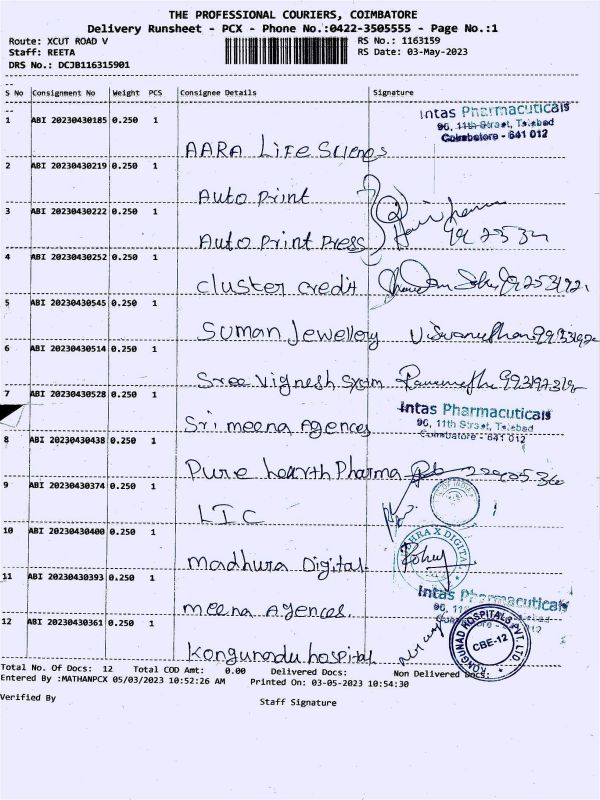 THE PROFESSIONAL COURIERS, COIMBATORE
Delivery Runsheet - PCX - Phone No.:0422-3505555 - Page No.:1
Route: XCUT ROAD V RS No.: 1163159
Staff: REETA RS Date: 03-May-2023
DRS No.: DCJB116315901
S No Consignment No Weight PCS Consignee Details Signature
1 ABI 20230430185 0.250 1 Intas Pharmacuticals
96, 11th Street, Tatabad
Coimbatore - 641 012
AARA Life Sciences
2 ABI 20230430219 0.250 1
Auto print
3 ABI 20230430222 0.250 1
Auto print press
4 ABI 20230430252 0.250 1
cluster credit
5 ABI 20230430545 0.250 1
Suman Jewellery
6 ABI 20230430514 0.250 1
Sree Vignesh
7 ABI 20230430528 0.250 1 Intas Pharmacuticals
96, 11th Street, Tatabad
Coimbatore - 641 012
Sri meena Agences
8 ABI 20230430438 0.250 1
Pure hearth Pharma
9 ABI 20230430374 0.250 1
LIC
10 ABI 20230430400 0.250 1
madhura Digital
11 ABI 20230430393 0.250 1 Intas Pharmacuticals
96, 11
meena Agences.
12 ABI 20230430361 0.250 1 KONGUNAD HOSPITALS PVT. LTD
CBE-12
Kongunadu hospital
Total No. Of Docs: 12 Total COD Amt: 0.00 Delivered Docs: Non Delivered Docs:
Entered By :MATHANPCX 05/03/2023 10:52:26 AM Printed On: 03-05-2023 10:54:30
Verified By Staff Signature